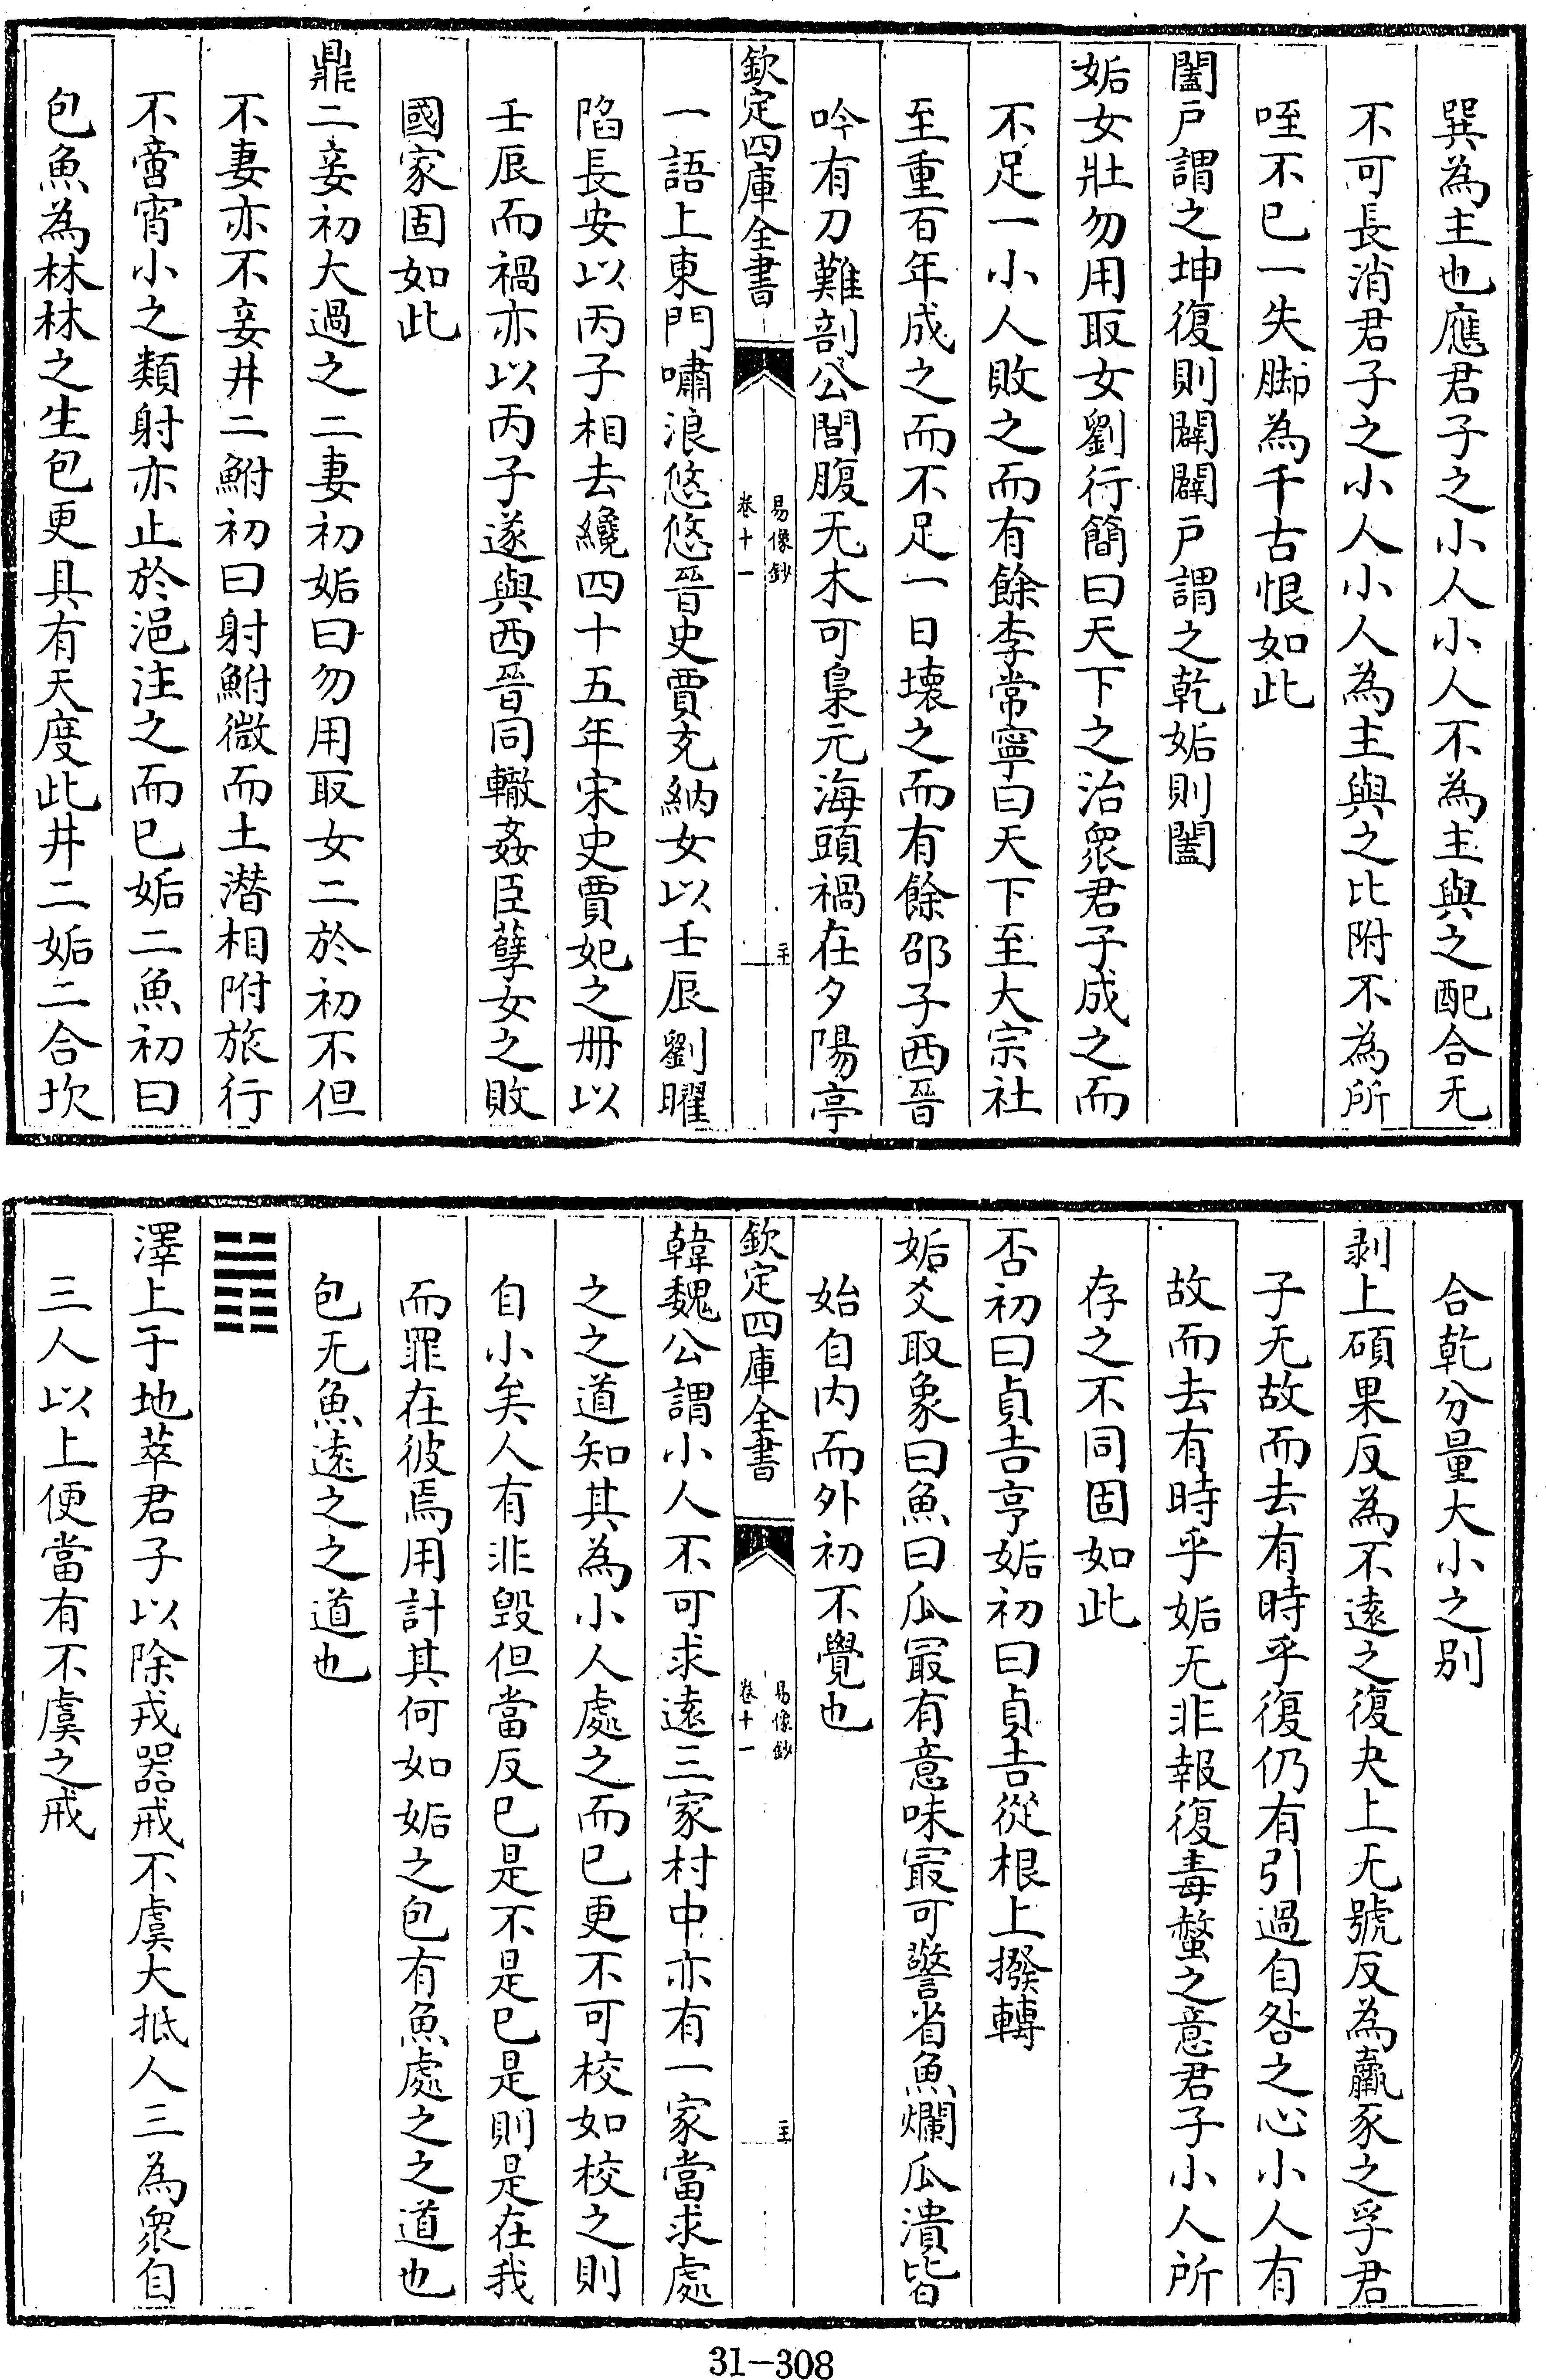 巽為主也應君子之小人小人不為主與之配合无
不可長消君子之小人小人為主與之比附不為所
咥不已一失脚為千古恨如此
闔戸謂之坤復則闢闢戸謂之乾姤則闔
姤女壯勿用取女劉行簡曰天下之治衆君子成之而
不足一小人敗之而有餘李常寧曰天下至大宗社
至重百年成之而不足一日壊之而有餘邵子西晉
吟有刀難剖公閭腹无木可梟元海頭禍在夕陽亭
欽定四庫全書
易像鈔
卷十一
一語上東門嘯浪悠悠晉史賈充納女以壬辰劉曜
陷長安以丙子相去纔四十五年宋史賈妃之册以
壬辰而禍亦以丙子遂與西晉同轍姦臣孽女之敗
國家固如此
鼎二妾初大過之二妻初姤曰勿用取女二於初不但
不妻亦不妾井二鮒初曰射鮒微而土潜相附旅行
不啻宵小之類射亦止於浥注之而已姤二魚初曰
包魚為林林之生包更具有天度此井二姤二合坎
合乾分量大小之别
剥上碩果反為不遠之復夬上无號反為羸豕之孚君
子无故而去有時乎復仍有引過自咎之心小人有
故而去有時乎姤无非報復毒螫之意君子小人所
存之不同固如此
否初曰貞吉亨姤初曰貞吉從根上撥轉
姤爻取象曰魚曰瓜最有意味最可警省魚爛瓜潰皆
始自内而外初不覺也
欽定四庫全書
易像鈔
卷十一
韓魏公謂小人不可求遠三家村中亦有一家當求處
之之道知其為小人處之而已更不可校如校之則
自小矣人有非毁但當反已是不是已是則是在我
而罪在彼焉用計其何如姤之包有魚處之之道也
包无魚遠之之道也
䷬
澤上于地萃君子以除戎器戒不虞大抵人三為衆自
三人以上便當有不虞之戒
31-308